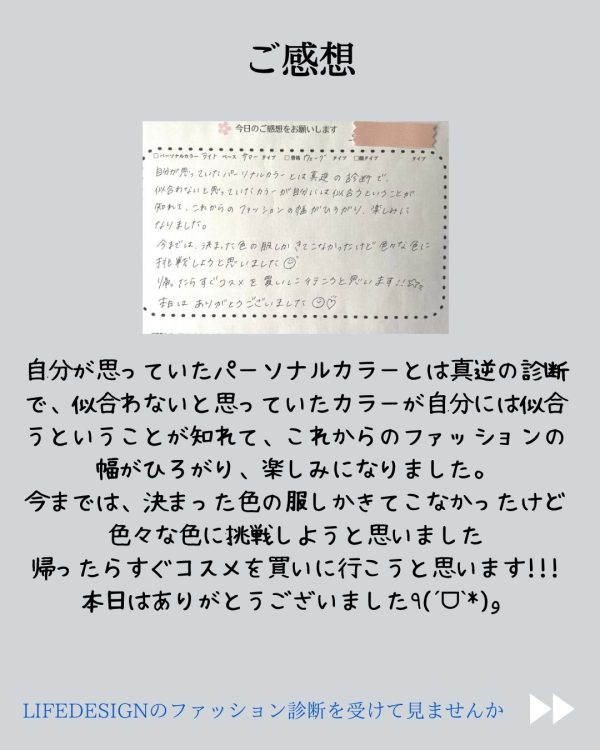 ご感想
今日のご感想をお願いします
□パーソナルカラー ライト ベース サマー タイプ □骨格 ウェーブ タイプ □顔タイプ タイプ
自分が思っていたパーソナルカラーとは真逆の診断で、
似合わないと思っていたカラーが自分には似合うということが
知れて、これからのファッションの幅がひろがり、楽しみに
なりました。
今までは、決まった色の服しかきてこなかったけど色々な色に
挑戦しようと思いました
帰ったらすぐコスメを買いに行こうと思います!!
本日はありがとうございました
自分が思っていたパーソナルカラーとは真逆の診断
で、似合わないと思っていたカラーが自分には似合
うということが知れて、これからのファッションの
幅がひろがり、楽しみになりました。
今までは、決まった色の服しかきてこなかったけど
色々な色に挑戦しようと思いました
帰ったらすぐコスメを買いに行こうと思います!!!
本日はありがとうございました٩(ˊᗜˋ*)و
LIFEDESIGNのファッション診断を受けて見ませんか